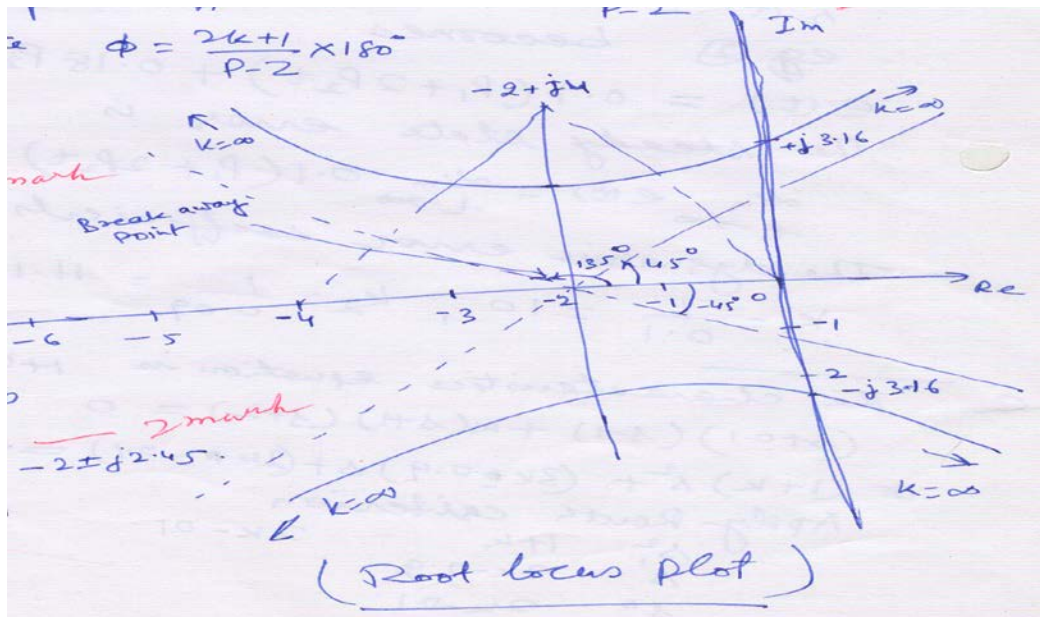 P-2 Im
φ = 2k+1 / P-Z × 180°
-2+j4
k=∞
k=∞
+j 3.16
mark
Break away
point
135° 45°
-45° 0
Re
-6 -5 -4 -3 -2 -1
-1
-2
-j 3.16
2 mark
-2 ± j2.45
k=∞
k=∞
(Root locus plot)